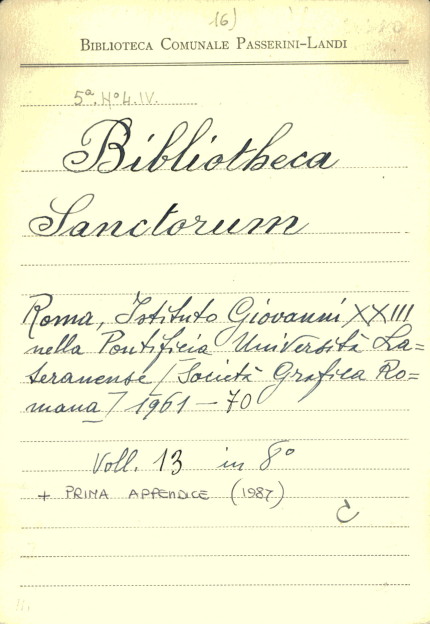 (6)
BIBLIOTECA COMUNALE PASSERINI-LANDI
5ª.Nº4.IV.
Bibliotheca
Sanctorum
Roma, Istituto Giovanni XXIII
nella Pontificia Università La=
teranense [Società Grafica Ro=
mana] 1961-70
Voll. 13 in 8º
+ PRIMA APPENDICE (1987)